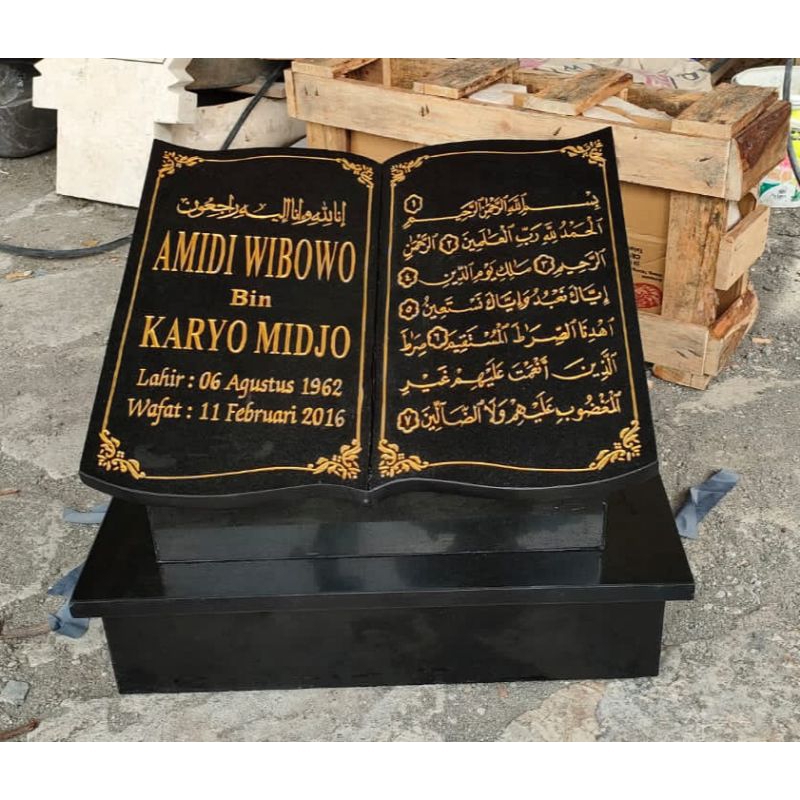 إنا لله وإنا إليه راجعون
AMIDI WIBOWO
Bin
KARYO MIDJO
Lahir : 06 Agustus 1962
Wafat : 11 Februari 2016
بِسْمِ ٱللَّهِ ٱلرَّحْمَٰنِ ٱلرَّحِيمِ ١
ٱلْحَمْدُ لِلَّهِ رَبِّ ٱلْعَالَمِينَ ٢ ٱلرَّحْمَٰنِ
ٱلرَّحِيمِ ٣ مَالِكِ يَوْمِ ٱلدِّينِ ٤
إِيَّاكَ نَعْبُدُ وَإِيَّاكَ نَسْتَعِينُ ٥
ٱهْدِنَا ٱلصِّرَاطَ ٱلْمُسْتَقِيمَ ٦ صِرَاطَ
ٱلَّذِينَ أَنْعَمْتَ عَلَيْهِمْ غَيْرِ
ٱلْمَغْضُوبِ عَلَيْهِمْ وَلَا ٱلضَّالِّينَ ٧